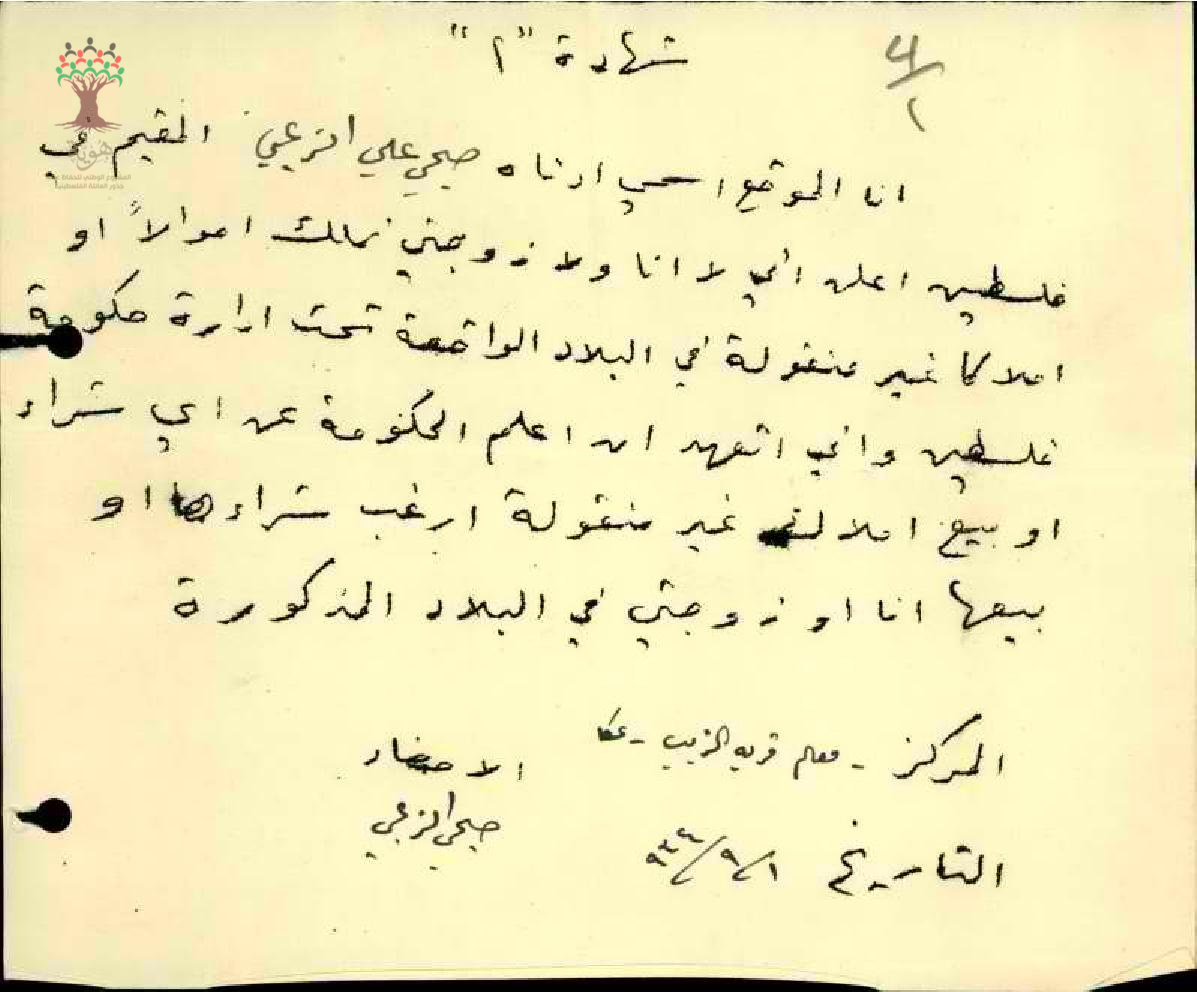 شهادة "٢"
٤/١
انا الموقع اسمي ادناه صبحي علي الزعبي المقيم في
فلسطين اعلن اني لا انا ولا زوجتي نملك اموالاً او
املاكا غير منقولة في البلاد الواقعة تحت ادارة حكومة
فلسطين واني اتعهد ان اعلم الحكومة عن اي شراء
او بيع املاك غير منقولة ارغب شراءها او
بيعها انا او زوجتي في البلاد المذكورة
المركز - معلم قرية الزيب - عكا
الامضاء
صبحي الزعبي
التاريخ ١/٩/٩٤٤
هوية
المشروع الوطني للحفاظ على
جذور العائلة الفلسطينية